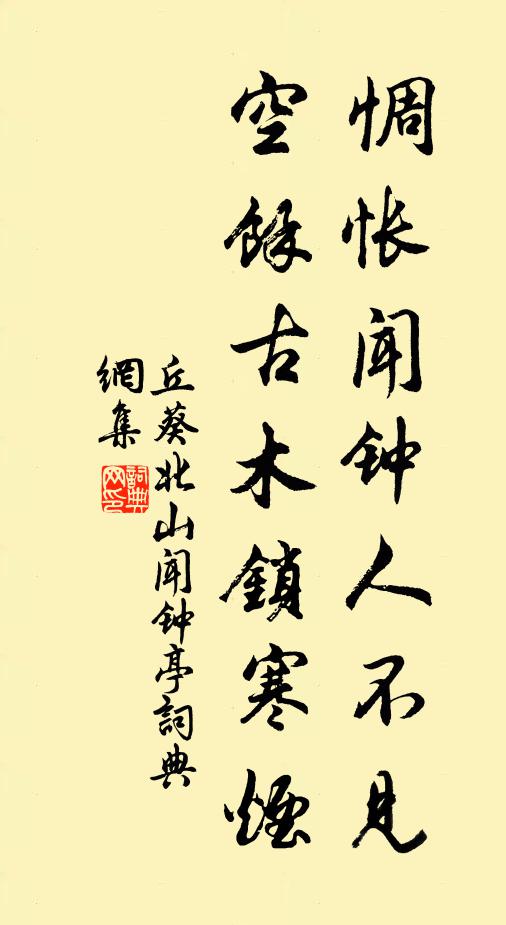 惆怅闻钟人不见
空餘古木鎖寒煙
丘葵北山闻钟亭詞典
網集
詞典网印